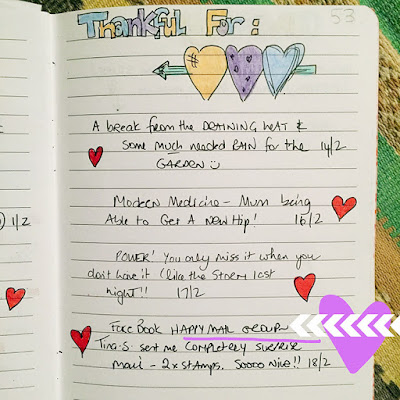 53
Thankful For:
A break from the DRAINING HEAT &
some much needed RAIN for the 14/2
GARDEN
Modern Medicine - Mum being
Able to Get A New Hip! 16/2
POWER! You only miss it when you
don't have it (like the storm last
night!! 17/2
FaceBook HAPPY MAIL GROUP
Tina.S. sent me completely surprise
mail - 2x stamps. Soooo Nice!! 18/2
1/2